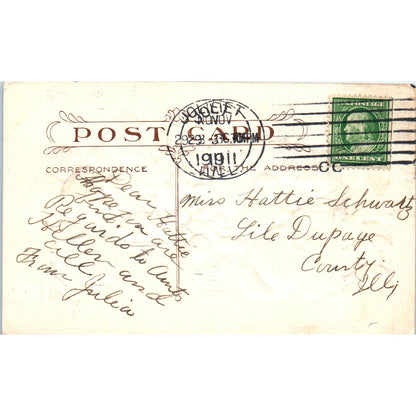 POST CARD
CORRESPONDENCE
THE ADDRESS
JOLIET
NOV
1911
ILL.
U.S. POSTAGE
ONE CENT
Dear Hattie
Hope you are
well
Regards to Aunt
and
From Julia
Miss Hattie Schwartz
Lile Dupage
County.
Ill